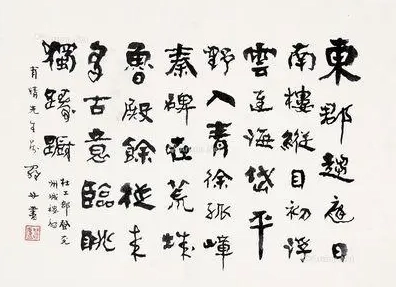 東郡趨庭日
南樓縱目初浮
雲連海岱平
野入青徐孤嶂
秦碑在荒城
魯殿餘從來
多古意臨眺
獨躊躕
杜工部登兗
州城樓
育晴先生 羅丹書